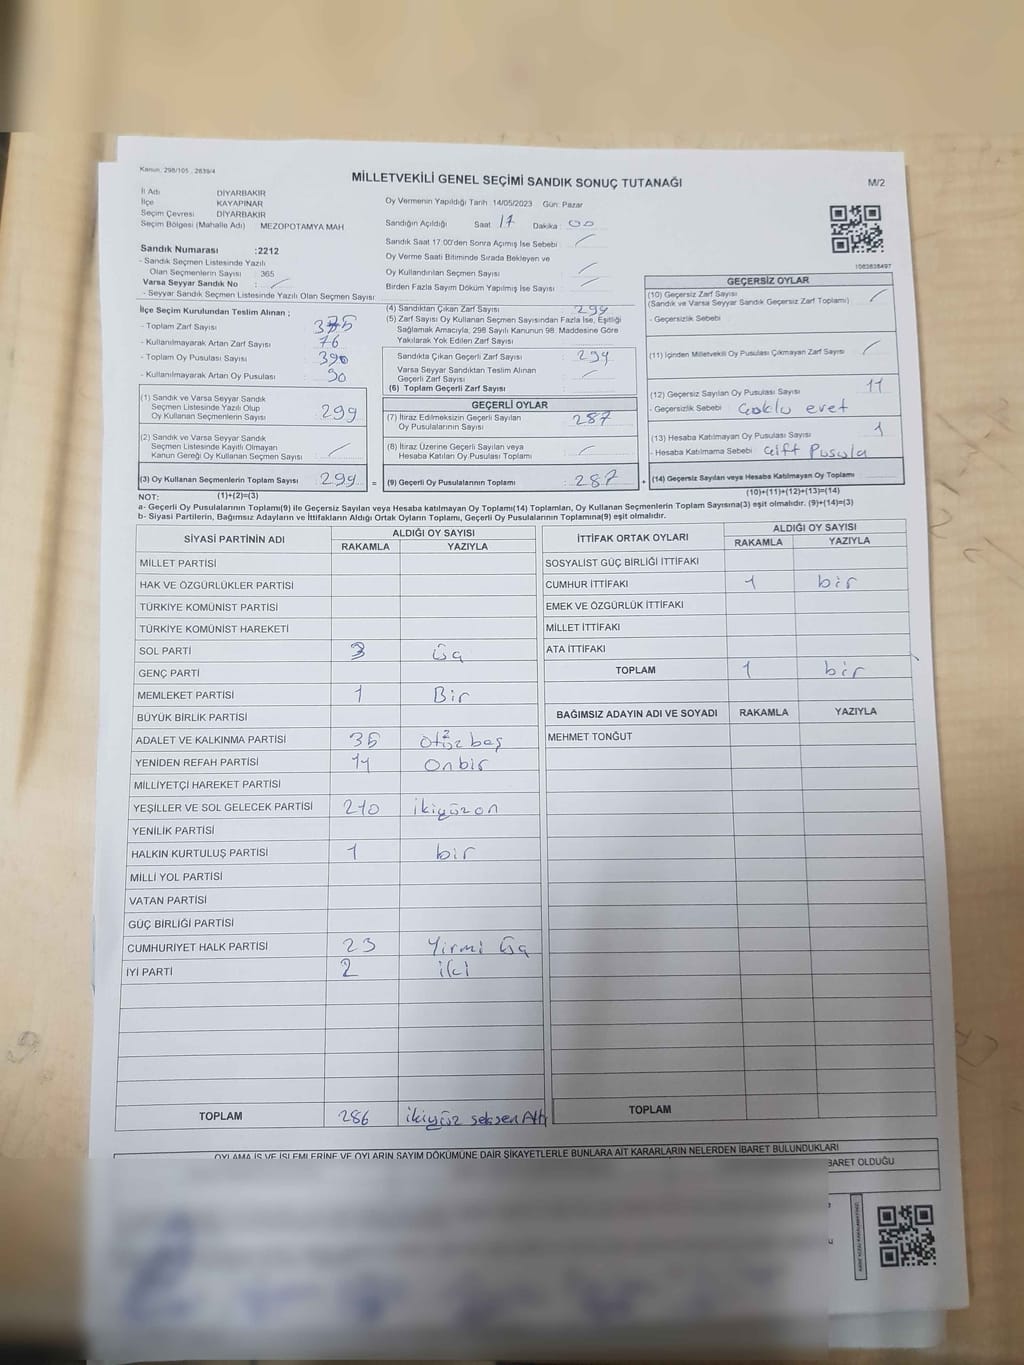 Kanun, 298/105 , 2839/4
MİLLETVEKİLİ GENEL SEÇİMİ SANDIK SONUÇ TUTANAĞI
M/2
İl Adı DİYARBAKIR
İlçe KAYAPINAR
Seçim Çevresi DİYARBAKIR
Seçim Bölgesi (Mahalle Adı) MEZOPOTAMYA MAH.
Sandık Numarası :2212
- Sandık Seçmen Listesinde Yazılı
Olan Seçmenlerin Sayısı : 365
Varsa Seyyar Sandık No :
- Seyyar Sandık Seçmen Listesinde Yazılı Olan Seçmen Sayısı:
Oy Vermenin Yapıldığı Tarih 14/05/2023 Gün: Pazar
Sandığın Açıldığı Saat 17 Dakika : 00
Sandık Saat 17.00'den Sonra Açılmış İse Sebebi :
Oy Verme Saati Bitiminde Sırada Bekleyen ve
Oy Kullandırılan Seçmen Sayısı :
Birden Fazla Sayım Döküm Yapılmış İse Sayısı :
1063838497
İlçe Seçim Kurulundan Teslim Alınan ;
- Toplam Zarf Sayısı : 375
- Kullanılmayarak Artan Zarf Sayısı : 76
- Toplam Oy Pusulası Sayısı : 390
- Kullanılmayarak Artan Oy Pusulası : 90
(1) Sandık ve Varsa Seyyar Sandık
Seçmen Listesinde Yazılı Olup
Oy Kullanan Seçmenlerin Sayısı : 299
(2) Sandık ve Varsa Seyyar Sandık
Seçmen Listesinde Kayıtlı Olmayan
Kanun Gereği Oy Kullanan Seçmen Sayısı :
(3) Oy Kullanan Seçmenlerin Toplam Sayısı : 299 =
(4) Sandıktan Çıkan Zarf Sayısı : 299
(5) Zarf Sayısı Oy Kullanan Seçmen Sayısından Fazla İse, Eşitliği
Sağlamak Amacıyla; 298 Sayılı Kanunun 98. Maddesine Göre
Yakılarak Yok Edilen Zarf Sayısı :
Sandıkta Çıkan Geçerli Zarf Sayısı : 299
Varsa Seyyar Sandıktan Teslim Alınan
Geçerli Zarf Sayısı :
(6) Toplam Geçerli Zarf Sayısı :
GEÇERLİ OYLAR
(7) İtiraz Edilmeksizin Geçerli Sayılan
Oy Pusulalarının Sayısı : 287
(8) İtiraz Üzerine Geçerli Sayılan veya
Hesaba Katılan Oy Pusulası Toplamı :
(9) Geçerli Oy Pusulalarının Toplamı : 287 +
GEÇERSİZ OYLAR
(10) Geçersiz Zarf Sayısı
(Sandık ve Varsa Seyyar Sandık Geçersiz Zarf Toplamı) :
- Geçersizlik Sebebi :
(11) İçinden Milletvekili Oy Pusulası Çıkmayan Zarf Sayısı :
(12) Geçersiz Sayılan Oy Pusulası Sayısı : 11
- Geçersizlik Sebebi : Çoklu evet
(13) Hesaba Katılmayan Oy Pusulası Sayısı : 1
- Hesaba Katılmama Sebebi : Çift Pusula
(14) Geçersiz Sayılan veya Hesaba Katılmayan Oy Toplamı :
NOT: (1)+(2)=(3) (10)+(11)+(12)+(13)=(14)
a- Geçerli Oy Pusulalarının Toplamı(9) ile Geçersiz Sayılan veya Hesaba katılmayan Oy Toplamı(14) Toplamları, Oy Kullanan Seçmenlerin Toplam Sayısına(3) eşit olmalıdır. (9)+(14)=(3)
b- Siyasi Partilerin, Bağımsız Adayların ve İttifakların Aldığı Ortak Oyların Toplamı, Geçerli Oy Pusulalarının Toplamına(9) eşit olmalıdır.
SİYASİ PARTİNİN ADI ALDIĞI OY SAYISI
RAKAMLA YAZIYLA
MİLLET PARTİSİ
HAK VE ÖZGÜRLÜKLER PARTİSİ
TÜRKİYE KOMÜNİST PARTİSİ
TÜRKİYE KOMÜNİST HAREKETİ
SOL PARTİ 3 üç
GENÇ PARTİ
MEMLEKET PARTİSİ 1 Bir
BÜYÜK BİRLİK PARTİSİ
ADALET VE KALKINMA PARTİSİ 35 otuz beş
YENİDEN REFAH PARTİSİ 11 Onbir
MİLLİYETÇİ HAREKET PARTİSİ
YEŞİLLER VE SOL GELECEK PARTİSİ 210 ikiyüz on
YENİLİK PARTİSİ
HALKIN KURTULUŞ PARTİSİ 1 bir
MİLLİ YOL PARTİSİ
VATAN PARTİSİ
GÜÇ BİRLİĞİ PARTİSİ
CUMHURİYET HALK PARTİSİ 23 Yirmi üç
İYİ PARTİ 2 iki
TOPLAM 286 ikiyüz seksen Altı
İTTİFAK ORTAK OYLARI ALDIĞI OY SAYISI
RAKAMLA YAZIYLA
SOSYALİST GÜÇ BİRLİĞİ İTTİFAKI
CUMHUR İTTİFAKI 1 bir
EMEK VE ÖZGÜRLÜK İTTİFAKI
MİLLET İTTİFAKI
ATA İTTİFAKI
TOPLAM 1 bir
BAĞIMSIZ ADAYIN ADI VE SOYADI RAKAMLA YAZIYLA
MEHMET TONĞUT
TOPLAM
OYLAMA İŞ VE İŞLEMLERİNE VE OYLARIN SAYIM DÖKÜMÜNE DAİR ŞİKAYETLERLE BUNLARA AİT KARARLARIN NELERDEN İBARET BULUNDUKLARI
BARET OLDUĞU